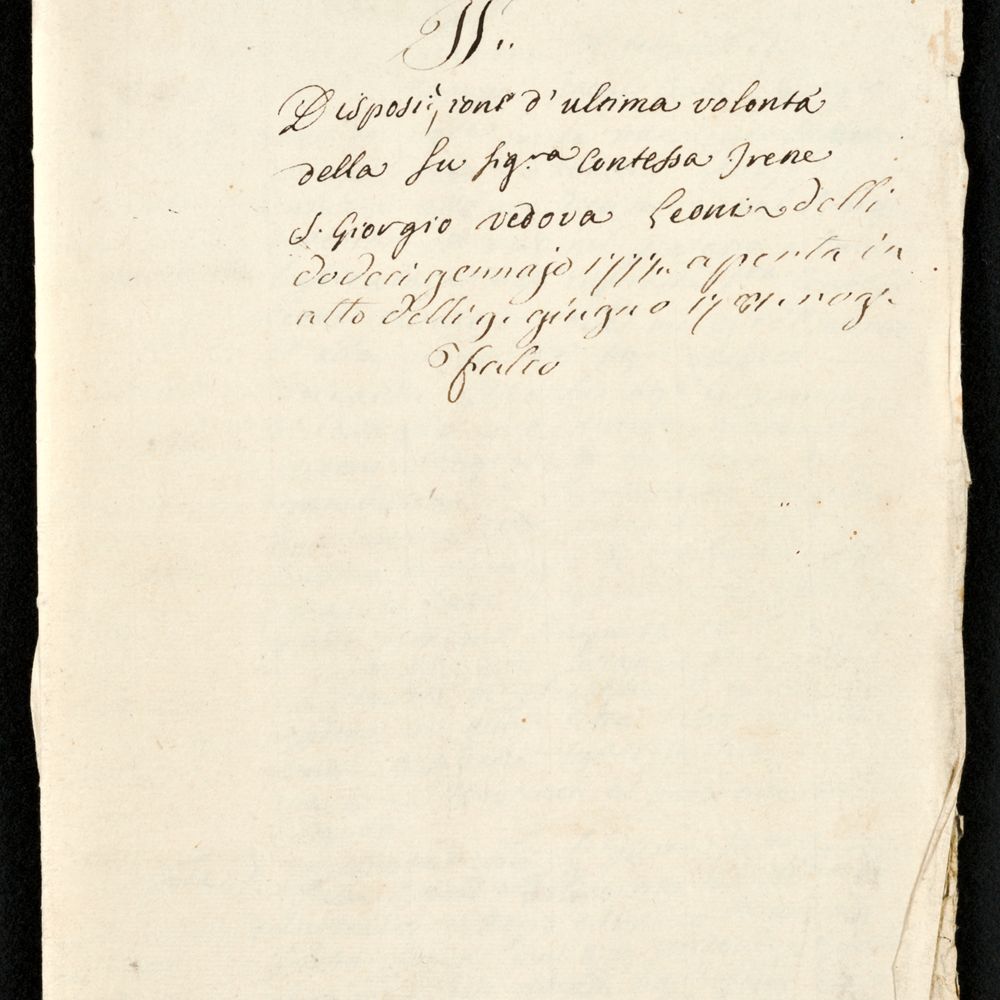 Disposizione d'ultima volontà
della fu Sig.ra Contessa Irene
S. Giorgio vedova Leoni delli
dodeci gennajo 1777. aperta in
atto delli 9. giugno 1781. rog.
Falco